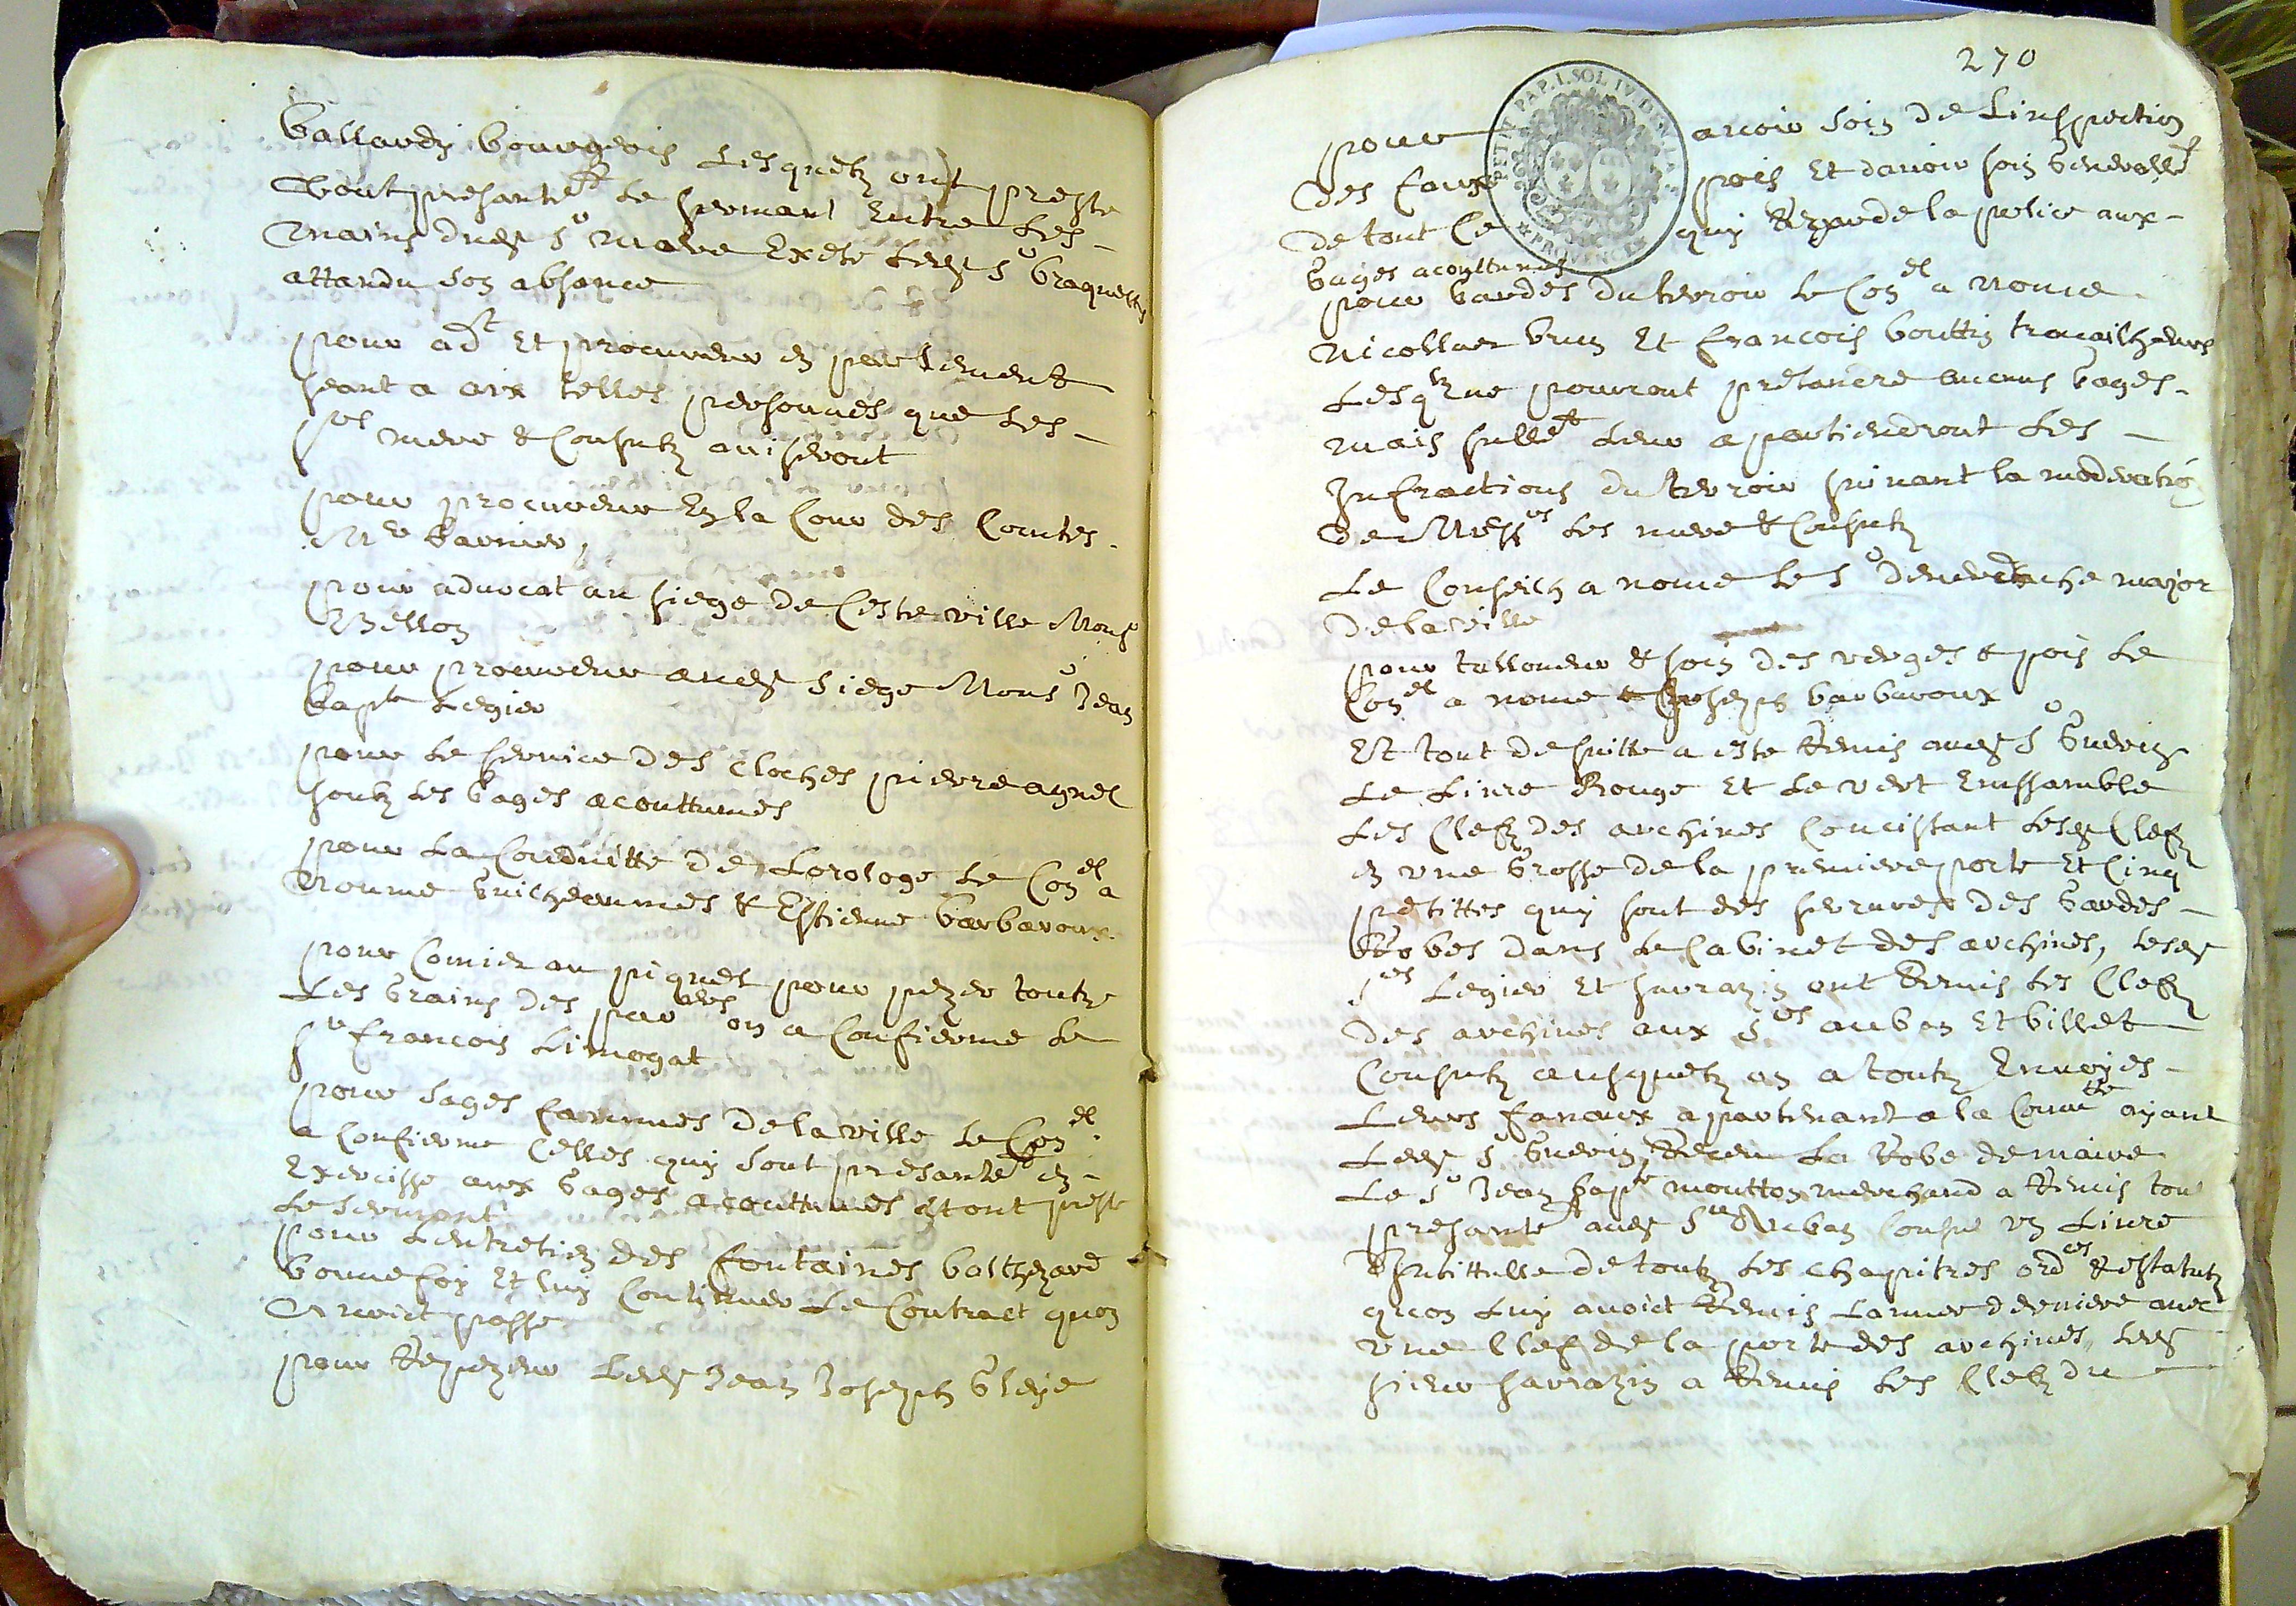 Gallardy bourgeois Lesquelz ont preste
tout presantem^t le sermant Entre Les
mains dud^t S^r maire Exepte led^t S^r braquetty
attandu son absance
pour ad^t Et procureur en parlement
seant a aix telles personnes que les
s^rs mere & Consulz aviseront
pour procureur En la Cour des Comtes
M^e Garnier,
pour advocat au siege de Ceste ville Mons^r
Bellon
pour procureur aud^t Siege Mons^r Jean
bap^te Legier
pour le service des cloches pierre agnel
soubz les Gages acouttumes
pour La Conduitte de Lorologe Le Con^el a
nomme Guilheaumes & Estienne barbaroux
pour Comier au piquet pour pezer toutz
Les Grains des par^ers on a Confierme le
s^r francois Limogat
pour Sages fammes de la ville le Con^el
a Confierme Celles quy sont presantem^t en
Exercisse aux Gages acouttumes & ont preste
le serment
pour Lentretien des fontaines balthezard
bonnefoy Et luy Continuer Le Contract quon
Avoict passe
pour Repezeur Led^t Jean Joseph Gleye
270
PETIT PAP. I. SOL IV. DEN. LA F.
PROVENCE
pour avoir soin de Linspection
des faux pois Et davoir soin Generallem^t
de tout Ce quy Regarde la police aux
Gages acouttumes
pour Gardes du terroir le Con^el a nome
Nicollas brun Et francois bouttin travailheurs
Lesq^lz ne pourront pretandre aucuns Gages
mais sullem^t Leur apartiendront Les
Infractions du terroir suivant la moderation
de Mess^rs les mere & Consulz
Le Conseilh a nome le S^r major
de la ville
pour talloneur & soin des verges & pois Le
Con^el a nome Joseph barbaroux
Et tout de suitte a este Remis aud^t S^r Guerin
Le Livre Rouge Et Le vert Enssamble
Les Clefz des archives Concistant lesd^s Clefz
en une Grosse de la premiere porte Et Cinq
petittes quy sont des serrures des Gardes
Robes dans le Cabinet des archives, lesd^s
s^rs Legier Et sarrazin ont Remis les Clefz
des archives aux S^rs auban Et billet
Consulz ausquelz on a toutz Envoyes
Leurs fanaux apartenant a la Comm^te ayant
Led^t S^r Guerin Receu La Robe de maire
Le S^r Jean bap^te moutton merchand a Remis tout
presantem^t aud^t S^r Auban Consul un Livre
Intittulle de toutz les chapitres ord^ces & estatutz
quon luy avoict Remis Lannee derniere avec
une Clef de la porte des archives, led^t
sieur sarrazin a Remis les Clefz du